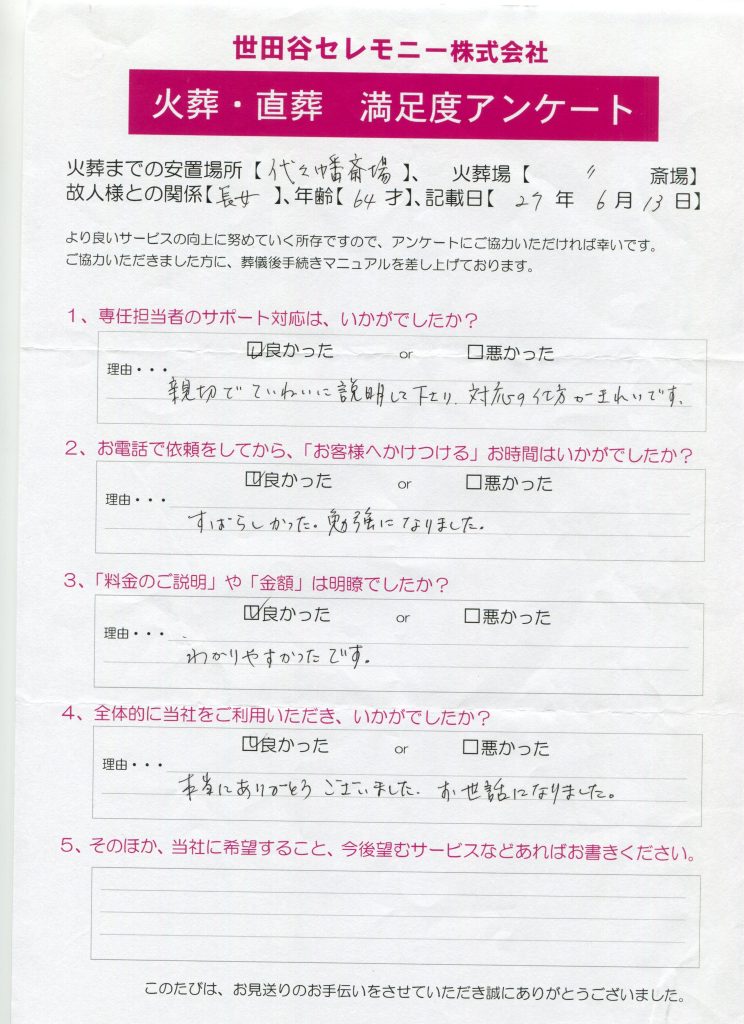 世田谷セレモニー株式会社
火葬・直葬　満足度アンケート
火葬までの安置場所【代々幡斎場】、　火葬場【　〃　斎場】
故人様との関係【長女】、年齢【64才】、記載日【27年6月13日】
より良いサービスの向上に努めていく所存ですので、アンケートにご協力いただければ幸いです。
ご協力いただきました方に、葬儀後手続きマニュアルを差し上げております。
1、専任担当者のサポート対応は、いかがでしたか？
☑良かった　or　□悪かった
理由・・・
親切でていねいに説明して下さり、対応の仕方がきれいです。
2、お電話で依頼をしてから、「お客様へかけつける」お時間はいかがでしたか？
☑良かった　or　□悪かった
理由・・・
すばらしかった。勉強になりました。
3、「料金のご説明」や「金額」は明瞭でしたか？
☑良かった　or　□悪かった
理由・・・
わかりやすかったです。
4、全体的に当社をご利用いただき、いかがでしたか？
☑良かった　or　□悪かった
理由・・・
本当にありがとうございました。お世話になりました。
5、そのほか、当社に希望すること、今後望むサービスなどあればお書きください。
このたびは、お見送りのお手伝いをさせていただき誠にありがとうございました。